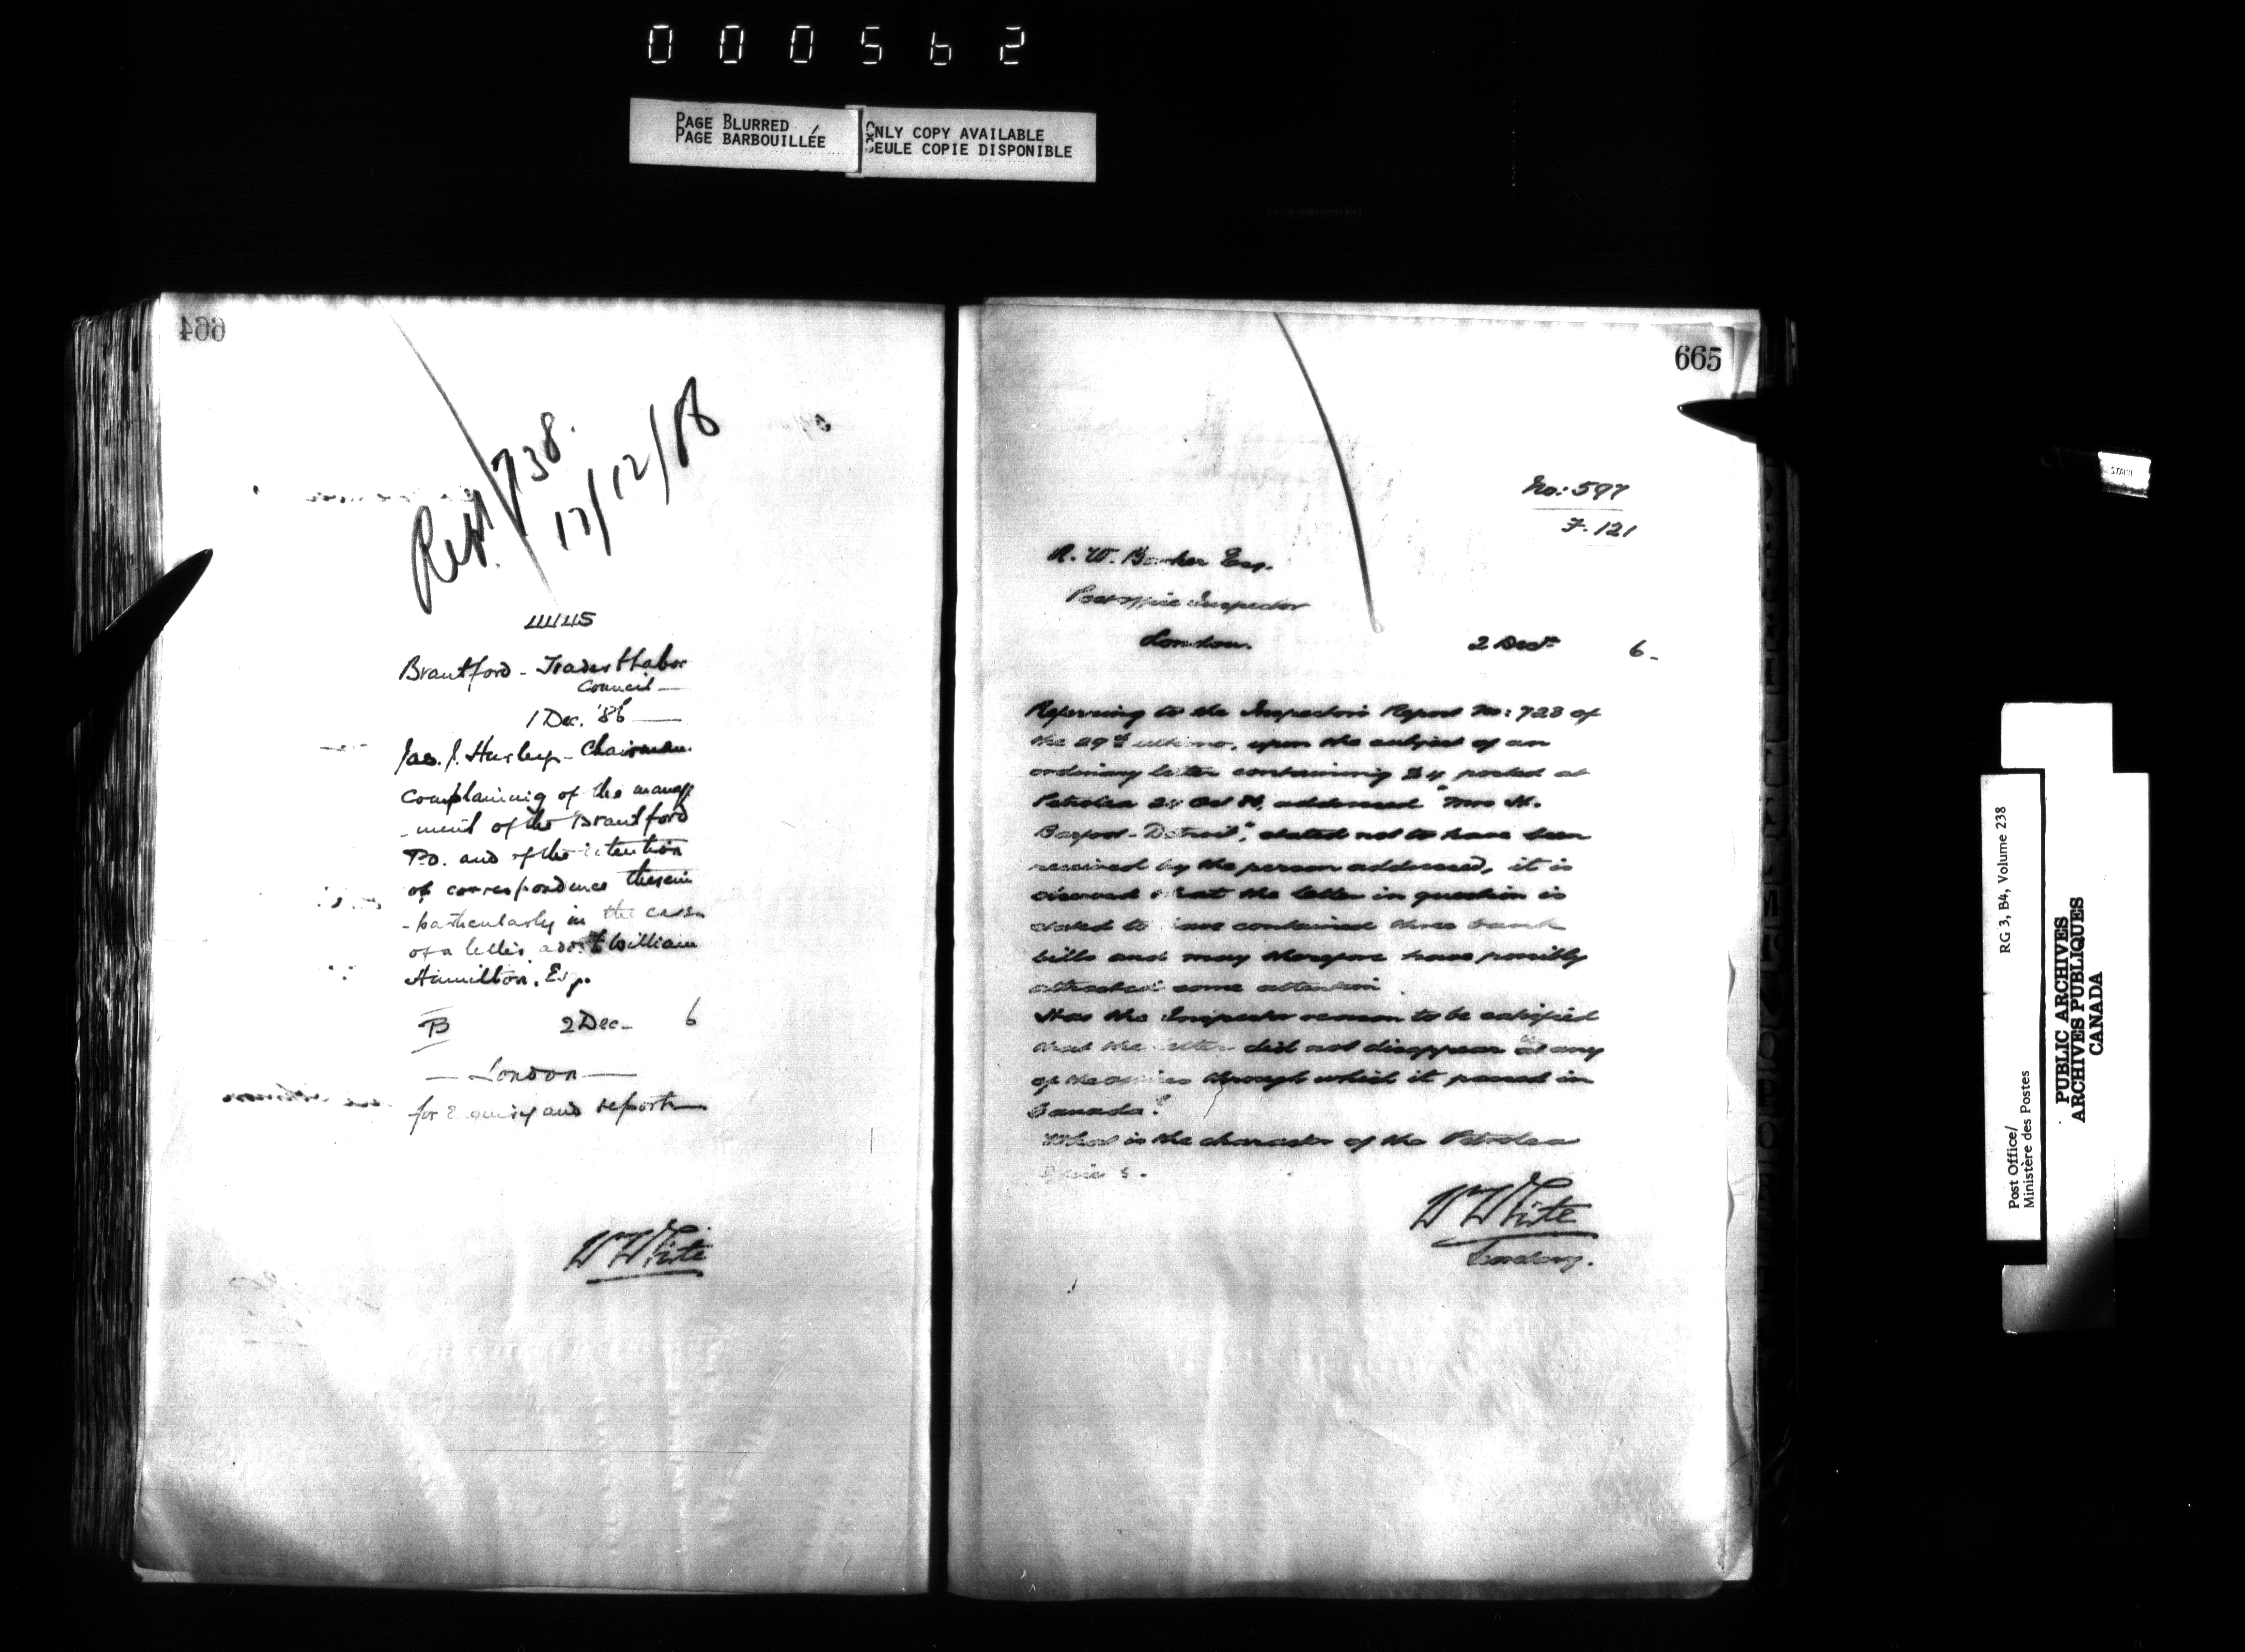 000562
PAGE BLURRED
PAGE BARBOUILLÉE
ONLY COPY AVAILABLE
SEULE COPIE DISPONIBLE
664
738.
17/12/86
44445
Brantford - Trades & Labor
Council -
1 Dec. '86
Jas. J. Hurley - Chairman
Complaining of the manage
-ment of the Brantford
P.O. and of the
of correspondence therein
- particularly in the case
of a letter to William
Hamilton, Esq.
B 2 Dec - 6
- London -
for Enquiry and report -
W White
665
No: 597
F. 121
R. W. Barker Esq.
Post office Inspector
London. 2 Decr 6 -
Referring to the Inspector's Report No: 723 of
the 29th ultimo, upon the subject of an
ordinary letter containing $4 posted at
Petrolea Oct 86, addressed "Mrs H.
Barfoot - Detroit", stated not to have been
received by the person addressed, it is
observed that the letter in question is
stated to have contained three bank
bills and may therefore have possibly
attracted some attention.
Has the Inspector reason to be satisfied
that the letter did not disappear at any
of the offices through which it passed in
Canada?
What is the character of the Petrolea
Office?
W White
Secretary.
Post Office/
Ministère des Postes
RG 3, B4, Volume 238
PUBLIC ARCHIVES
ARCHIVES PUBLIQUES
CANADA